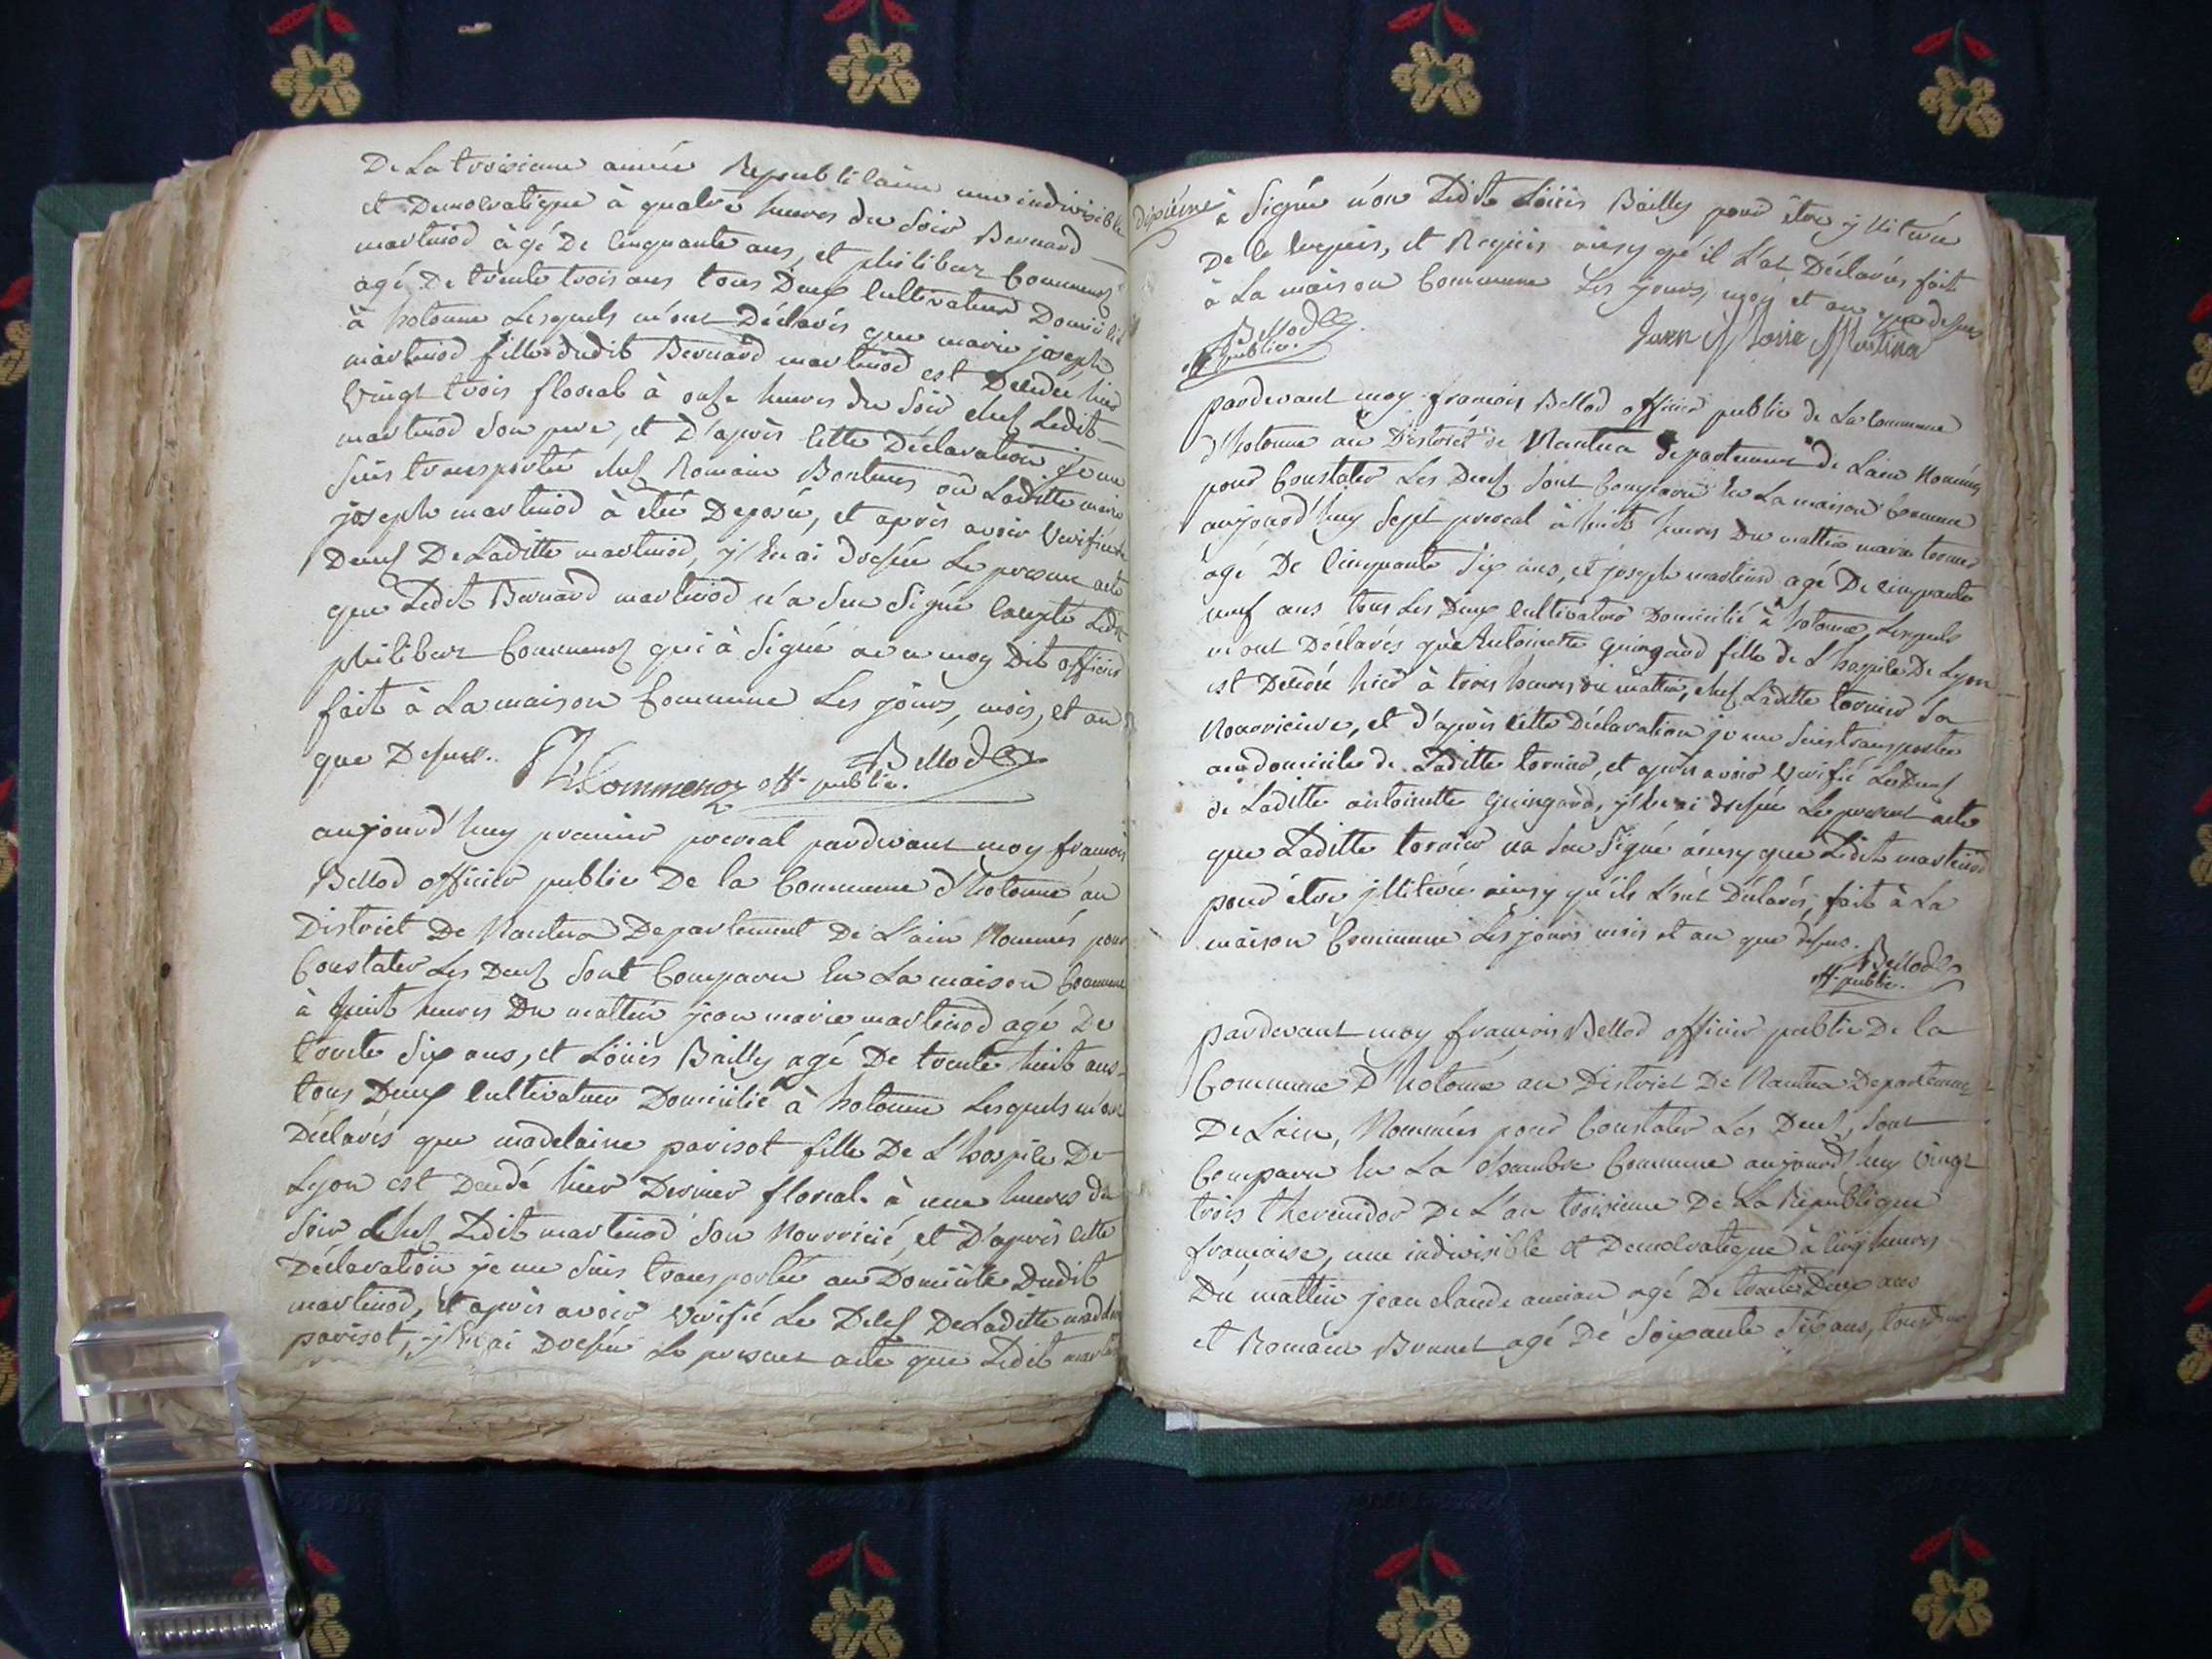 De La troisieme année Republicaine une indivisible
et Democratique à quatre heures du Soir Bernard
martinod âgé De cinquante ans, et philiber Commenoz
agé De trente trois ans tous Deux Cultivateur Domicilié
à hotonne Lesquels m'ont Déclarés que marie joseph
martinod fille dudit Bernard martinod est Decedée hier
Vingt trois floreal à onze heures du Soir chez Ledit
martinod Son pere, et D'après Cette Déclaration je me
Suis transportée chez Romain où Laditte marie
joseph martinod à été Deposée, et après avoir Verifié le
Deces De Laditte martinod, j'En ai Dressée Le present acte
que Ledit Bernard martinod n'a Seu Signé Excepté Ledit
philiber Commenoz qui à Signé avec moy Dit officier
fait à La maison Commune Les jours, mois, et an
que Dessus.
Ph Commenoz Bellod
off. public.
aujourd'huy premier prereal pardevant moy francois
Bellod officier public De la Commune d'hotonne au
District De Nantua Departement De L'ain Nommés pour
Constater Les Deces Sont Comparu En La maison Commune
à huit heures Du mattin jean marie martinod agé De
trente Six ans, et Loüis Bailly agé De trente huit ans
tous Deux Cultivateur Domicilié à hotonne Lesquels m'ont
Déclarés que madelaine parisot fille De L'hospile De
Lyon est Decedé hier Dernier floreal à une heures du
Soir chez Ledit martinod Son Nourricié, et D'après cette
Déclaration je me Suis transportée au Domicile Dudit
martinod, et après avoir Verifié Le Deces De Laditte
parisot, j'En ai Dressée Le present acte que Ledit
Dixiéme
à Signée non Ledit Loüis Bailly pour être jllitérée
De le Enquis, et Requis ainsy qu'il L'at Déclarés, fait
à La maison Commune Les jours, moy et an que dessus
Bellod Jean Marie Martina
off. public.
pardevant moy francois Bellod officier public de La commune
d'hotonne au District de Nantua Departement de Lain Nommés
pour Constater Les Deces Sont Comparu En La maison Commune
aujourd'huy Sept prereal à huit heures Du mattin marie tornier
agé De Cinquante Six ans, et joseph martinod agé De cinquante
neuf ans tous Les Deux Cultivateur Domicilié à hotonne, Lesquels
m'ont Déclarés que Antoinette guingard fille de L'hospile De Lyon
est Decedée hier à trois heures du mattin, chez Laditte tornier Sa
Nourricière, et d'après cette Déclaration je me Suis transportée
au domicile de Laditte tornier, et après avoir Verifié Le Deces
de Laditte antoinette guingard, j'En ai dressée Le present acte
que Laditte tornier na Seu Signé ainsy que Ledit martinod
pour être jllitérée ainsy qu'ils L'ont Déclarés, fait à La
maison Commune Les jours mois et an que dessus.
Bellod
off. public.
pardevant moy francois Bellod officier public De la
Commune D'hotonne au District De Nantua Departement
De Lain, Nommés pour Constater Les Deces, Sont
Comparu En La Chambre Commune aujourd'huy Vingt
trois thermidor De L'an troisieme De La Republique
française, une indivisible et Democratique à Cinq heures
Du mattin jean claude ancian agé De trente Deux ans
et Romain Brunet agé De Soixante Six ans, tous Deux